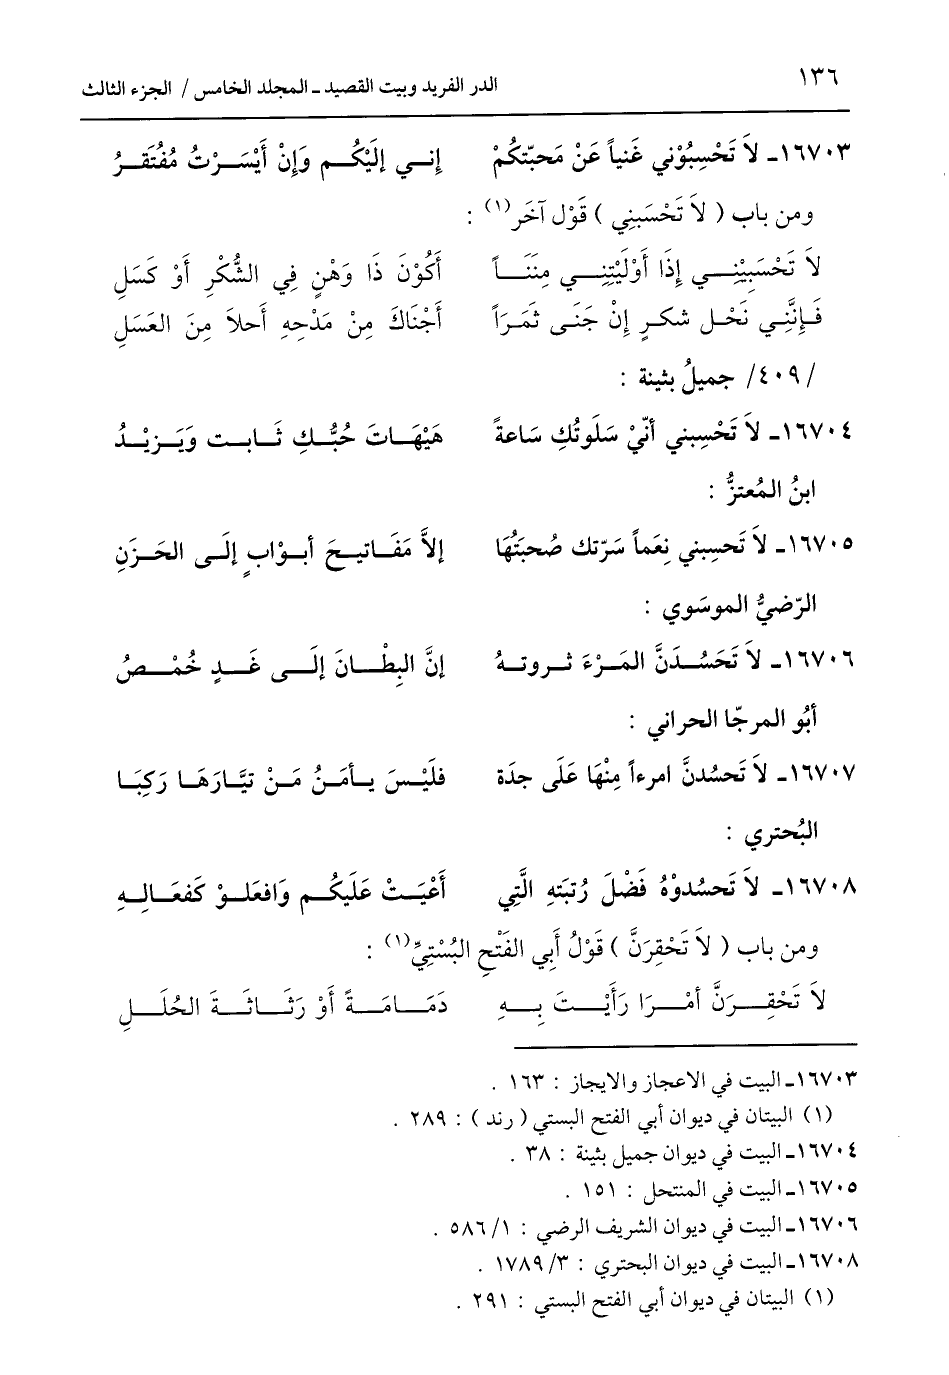 ١٣٦
الدر الفريد وبيت القصيد - المجلد الخامس / الجزء الثالث
١٦٧٠٣- لاَ تَحْسِبُوْني غَنياً عَنْ مَحبّتكُمْ إني إلَيْكُم وَإنْ أَيْسَرْتُ مُفْتَقرُ
ومن باب ( لاَ تَحْسَبَنِي ) قَوْل آخَر(١) :
لاَ تَحْسَبِيْنِي إِذَا أَوْلَيْتِنِي مِنَنَاً أَكُوْنَ ذَا وَهْنٍ فِي الشُّكْرِ أَوْ كَسَلِ
فَإِنَّنِي نَحْل شكرٍ إنْ جَنَى ثمَرَاً أَجْنَاكَ مِنْ مَدْحِهِ أَحلاَ مِنَ العَسَلِ
/٤٠٩/ جميلُ بثينة :
١٦٧٠٤- لاَ تَحْسِبني أنّيْ سَلَوتُكِ سَاعةً هَيْهَاتَ حُبُّكِ ثَابت وَيَزيْدُ
ابنُ المُعتزُّ :
١٦٧٠٥- لاَ تَحسِبني نِعَماً سَرّتك صُحبَتُهَا إلاَّ مَفَاتيحَ أبوْابٍ إلَى الحَزَنِ
الرّضيُّ الموسَوي :
١٦٧٠٦- لاَ تَحَسُدَنَّ المَرْءَ ثروتهُ إنَّ البِطْانَ إلَى غَدٍ خُمْصُ
أبُو المرجّا الحراني :
١٦٧٠٧- لاَ تَحسُدنَّ امرءاً مِنْهَا عَلَى جدَة فلَيْسَ يأمَنُ مَنْ تيَّارَهَا رَكِبَا
البُحتري :
١٦٧٠٨- لاَ تَحسُدوْهُ فَضْلَ رُتبَتهِ الَّتِي أَعْيَتْ عَلَيكُم وَافعَلوْ كَفعَالِهِ
ومن باب ( لاَ تَحْقِرَنَّ ) قَوْلُ أَبِي الفَتْحِ البُسْتِيِّ(١) :
لاَ تَحْقِرَنَّ أمْرَا رَأَيْتَ بِهِ دَمَامَةً أَوْ رَثَاثَةَ الحُلَلِ
١٦٧٠٣- البيت في الاعجاز والايجاز : ١٦٣ .
(١) البيتان في ديوان أبي الفتح البستي ( رند ) : ٢٨٩ .
١٦٧٠٤- البيت في ديوان جميل بثينة : ٣٨ .
١٦٧٠٥- البيت في المنتحل : ١٥١ .
١٦٧٠٦- البيت في ديوان الشريف الرضي : ١/ ٥٨٦ .
١٦٧٠٨- البيت في ديوان البحتري : ٣/ ١٧٨٩ .
(١) البيتان في ديوان أبي الفتح البستي : ٢٩١ .